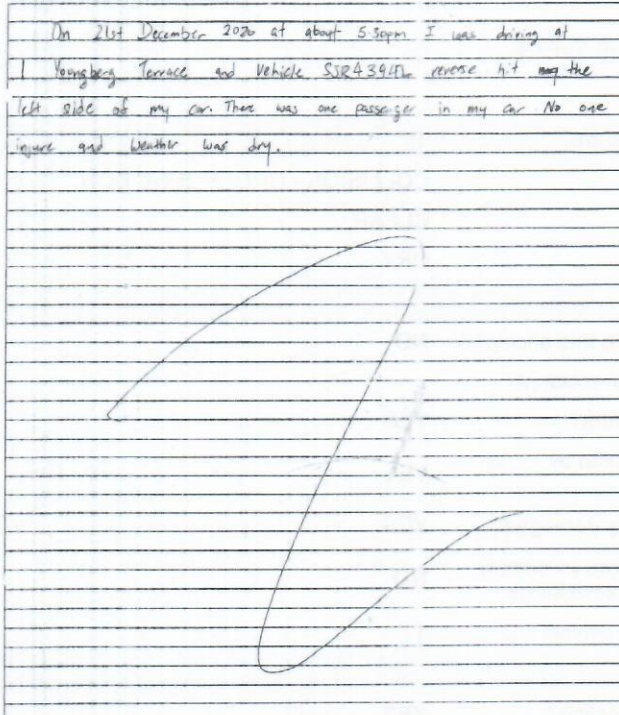 On 21st December 2020 at about 5:50pm I was driving at
1 Youngberg Terrace and Vehicle reverse hit the
left side of my car. There was one passenger in my car No one
injure and weather was dry.